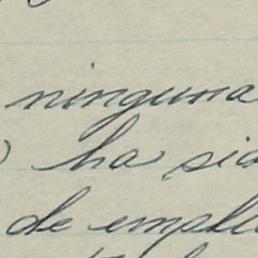 ninguna
ha sid
de emple